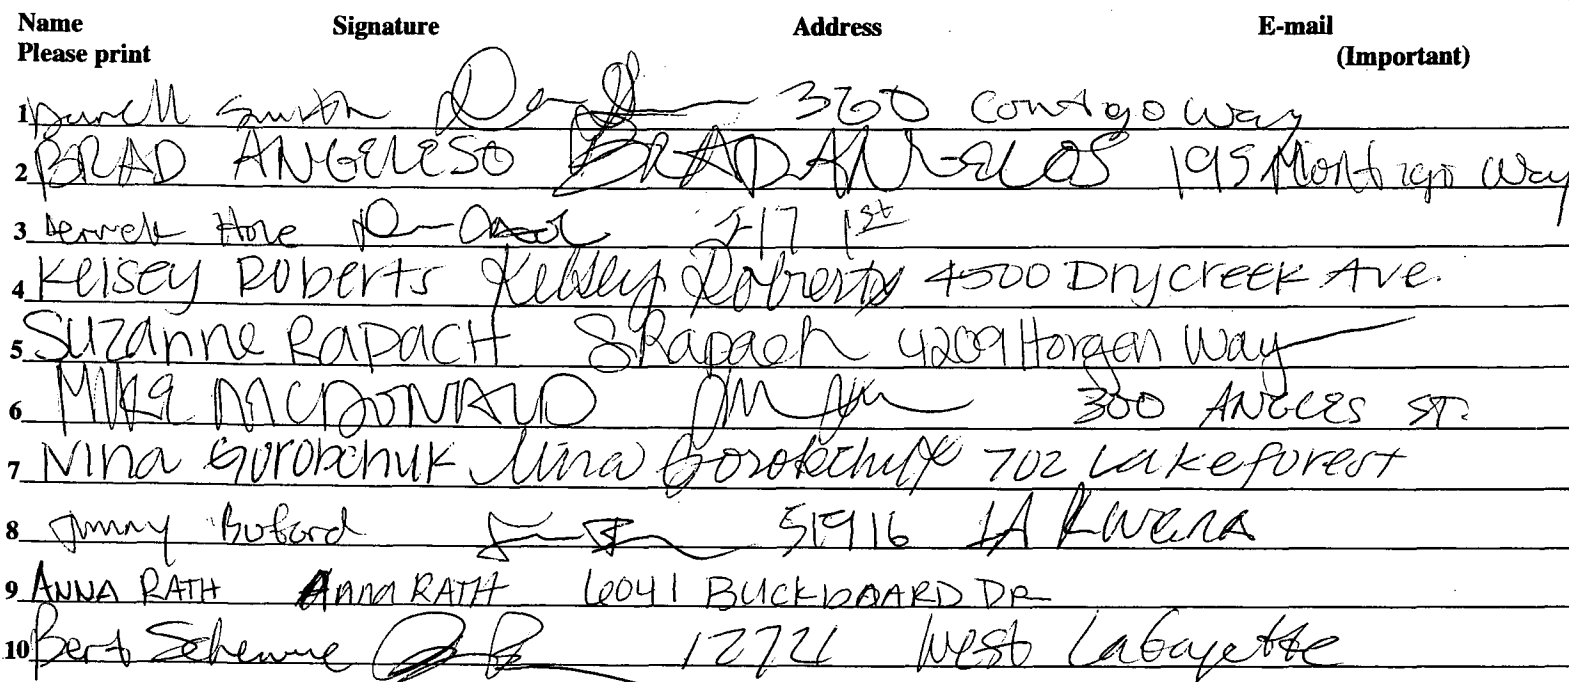 Name Signature Address E-mail
Please print (Important)
1 Darell Smith 360 Contigo Way
2 BRAD ANGELESO BRAD ANGELOS 195 Montiego Way
3 Derrick Hone 217 1st
4 Kelsey Roberts Kelsey Roberts 4500 Dry Creek Ave.
5 Suzanne RAPACH SRapach 4209 Horgan Way
6 MIKE MCDONALD 300 ANGELES ST.
7 Nina Gorobchuk Nina Gorobchuk 702 Lakeforest
8 Jimmy Buford 51916 LA Rivera
9 ANNA RATH Anna RATH 6041 BUCKBOARD DR
10 Bert 12721 West Lafayette